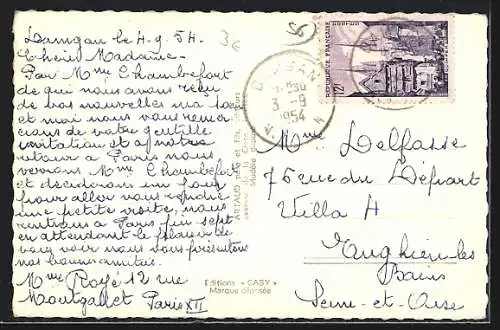 Damgan le 4-9-54-
Chère Madame-
Par Mme Chambefort
de qui nous avons reçu
de vos nouvelles ma sœur
et moi nous vous remer
cions de votre gentille
invitation et à notre
retour à Paris nous
verrons Mme Chambefort
et déciderons un jour
pour aller vous rendre
une petite visite, nous
rentrons à Paris fin sept
en attendant le plaisir de
vous voir nous vous présentons
nos bonnes amitiés.
Mme Royé 12 rue
Montgallet Paris XII
3€
56
DAMGAN
3-9
1954
REPUBLIQUE FRANÇAISE
QUIMPER
12F
ARTAUD Père et Fils, Éditeurs
Editions « GABY »
Marque déposée
Mme Delfasse
76 rue du Départ
Villa A
Enghien-les
Bains
Seine-et-Oise